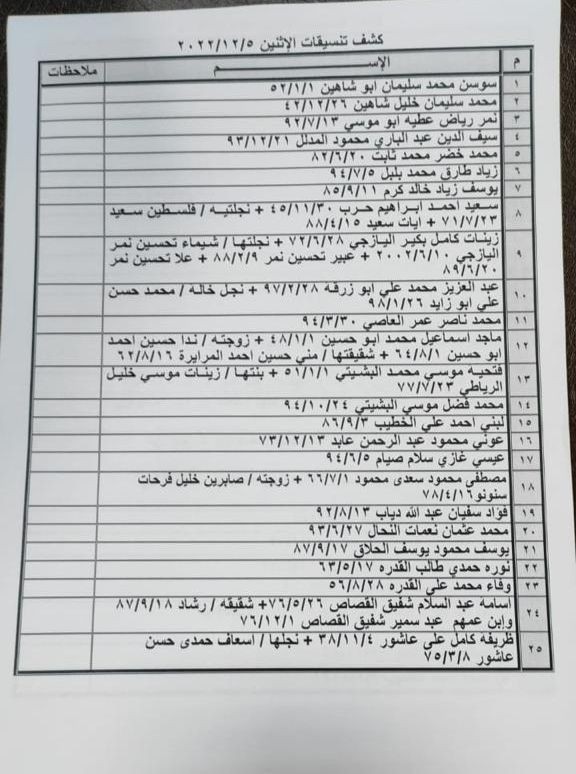 كشف تنسيقات الإثنين ٢٠٢٢/١٢/٥
م الإســـم ملاحظات
١ سوسن محمد سليمان ابو شاهين ٥٢/١/١
٢ محمد سليمان خليل شاهين ٤٢/١٢/٢٦
٣ نمر رياض عطيه ابو موسي ٩٢/٧/١٣
٤ سيف الدين عبد الباري محمود المدلل ٩٣/١٢/٢١
٥ محمد خضر محمد ثابت ٨٢/٦/٢٠
٦ زياد طارق محمد بلبل ٩٤/٧/٥
٧ يوسف زياد خالد كرم ٨٥/٩/١١
٨ سعيد احمد ابراهيم حرب ٤٥/١١/٣٠ + نجلتيه / فلسطين سعيد
٧١/٧/٢٣ + ايات سعيد ٨٨/٤/١٥
٩ زينات كامل بكير اليازجي ٧٢/٦/٢٨ + نجلتها / شيماء تحسين نمر
اليازجي ٢٠٠٢/٦/١٠ + عبير تحسين نمر ٨٨/٢/٩ + علا تحسين نمر
٨٩/٦/٢٠
١٠ عبد العزيز محمد علي ابو زرقه ٩٧/٢/٢٨ + نجل خاله / محمد حسن
علي ابو زايد ٩٨/١/٢٦
١١ محمد ناصر عمر العاصي ٩٤/٣/٣٠
١٢ ماجد اسماعيل محمد ابو حسين ٤٨/١/١ + زوجته / ندا حسين احمد
ابو حسين ٦٤/٨/١ + شقيقتها / مني حسين احمد المرايرة ٦٢/٨/١٦
١٣ فتحيه موسي محمد البشيتي ٥١/١/١ + بنتها / زينات موسي خليل
الرياطي ٧٧/٧/٢٣
١٤ محمد فضل موسي البشيتي ٩٤/١٠/٢٤
١٥ لبني احمد علي الخطيب ٨٦/٩/٣
١٦ عوني محمود عبد الرحمن عابد ٧٣/١٢/١٣
١٧ عيسي غازي سلام صيام ٩٤/٦/٥
١٨ مصطفى محمود سعدى محمود ٦٦/٧/١ + زوجته / صابرين خليل فرحات
سنونو ٧٨/٤/١٦
١٩ فؤاد سفيان عبد الله دياب ٩٢/٨/١٣
٢٠ محمد عثمان نعمات النحال ٩٣/٦/٢٧
٢١ يوسف محمود يوسف الحلاق ٨٧/٩/١٧
٢٢ نوره حمدي طالب القدره ٦٣/٥/١٧
٢٣ وفاء محمد علي القدره ٥٦/٨/٢٨
٢٤ اسامه عبد السلام شفيق القصاص ٧٦/٥/٢٦+ شقيقه / رشاد ٨٧/٩/١٨
وابن عمهم عبد سمير شفيق القصاص ٧٦/١٢/١
٢٥ ظريفه كامل على عاشور ٣٨/١١/٤ + نجلها / اسعاف حمدى حسن
عاشور ٧٥/٣/٨